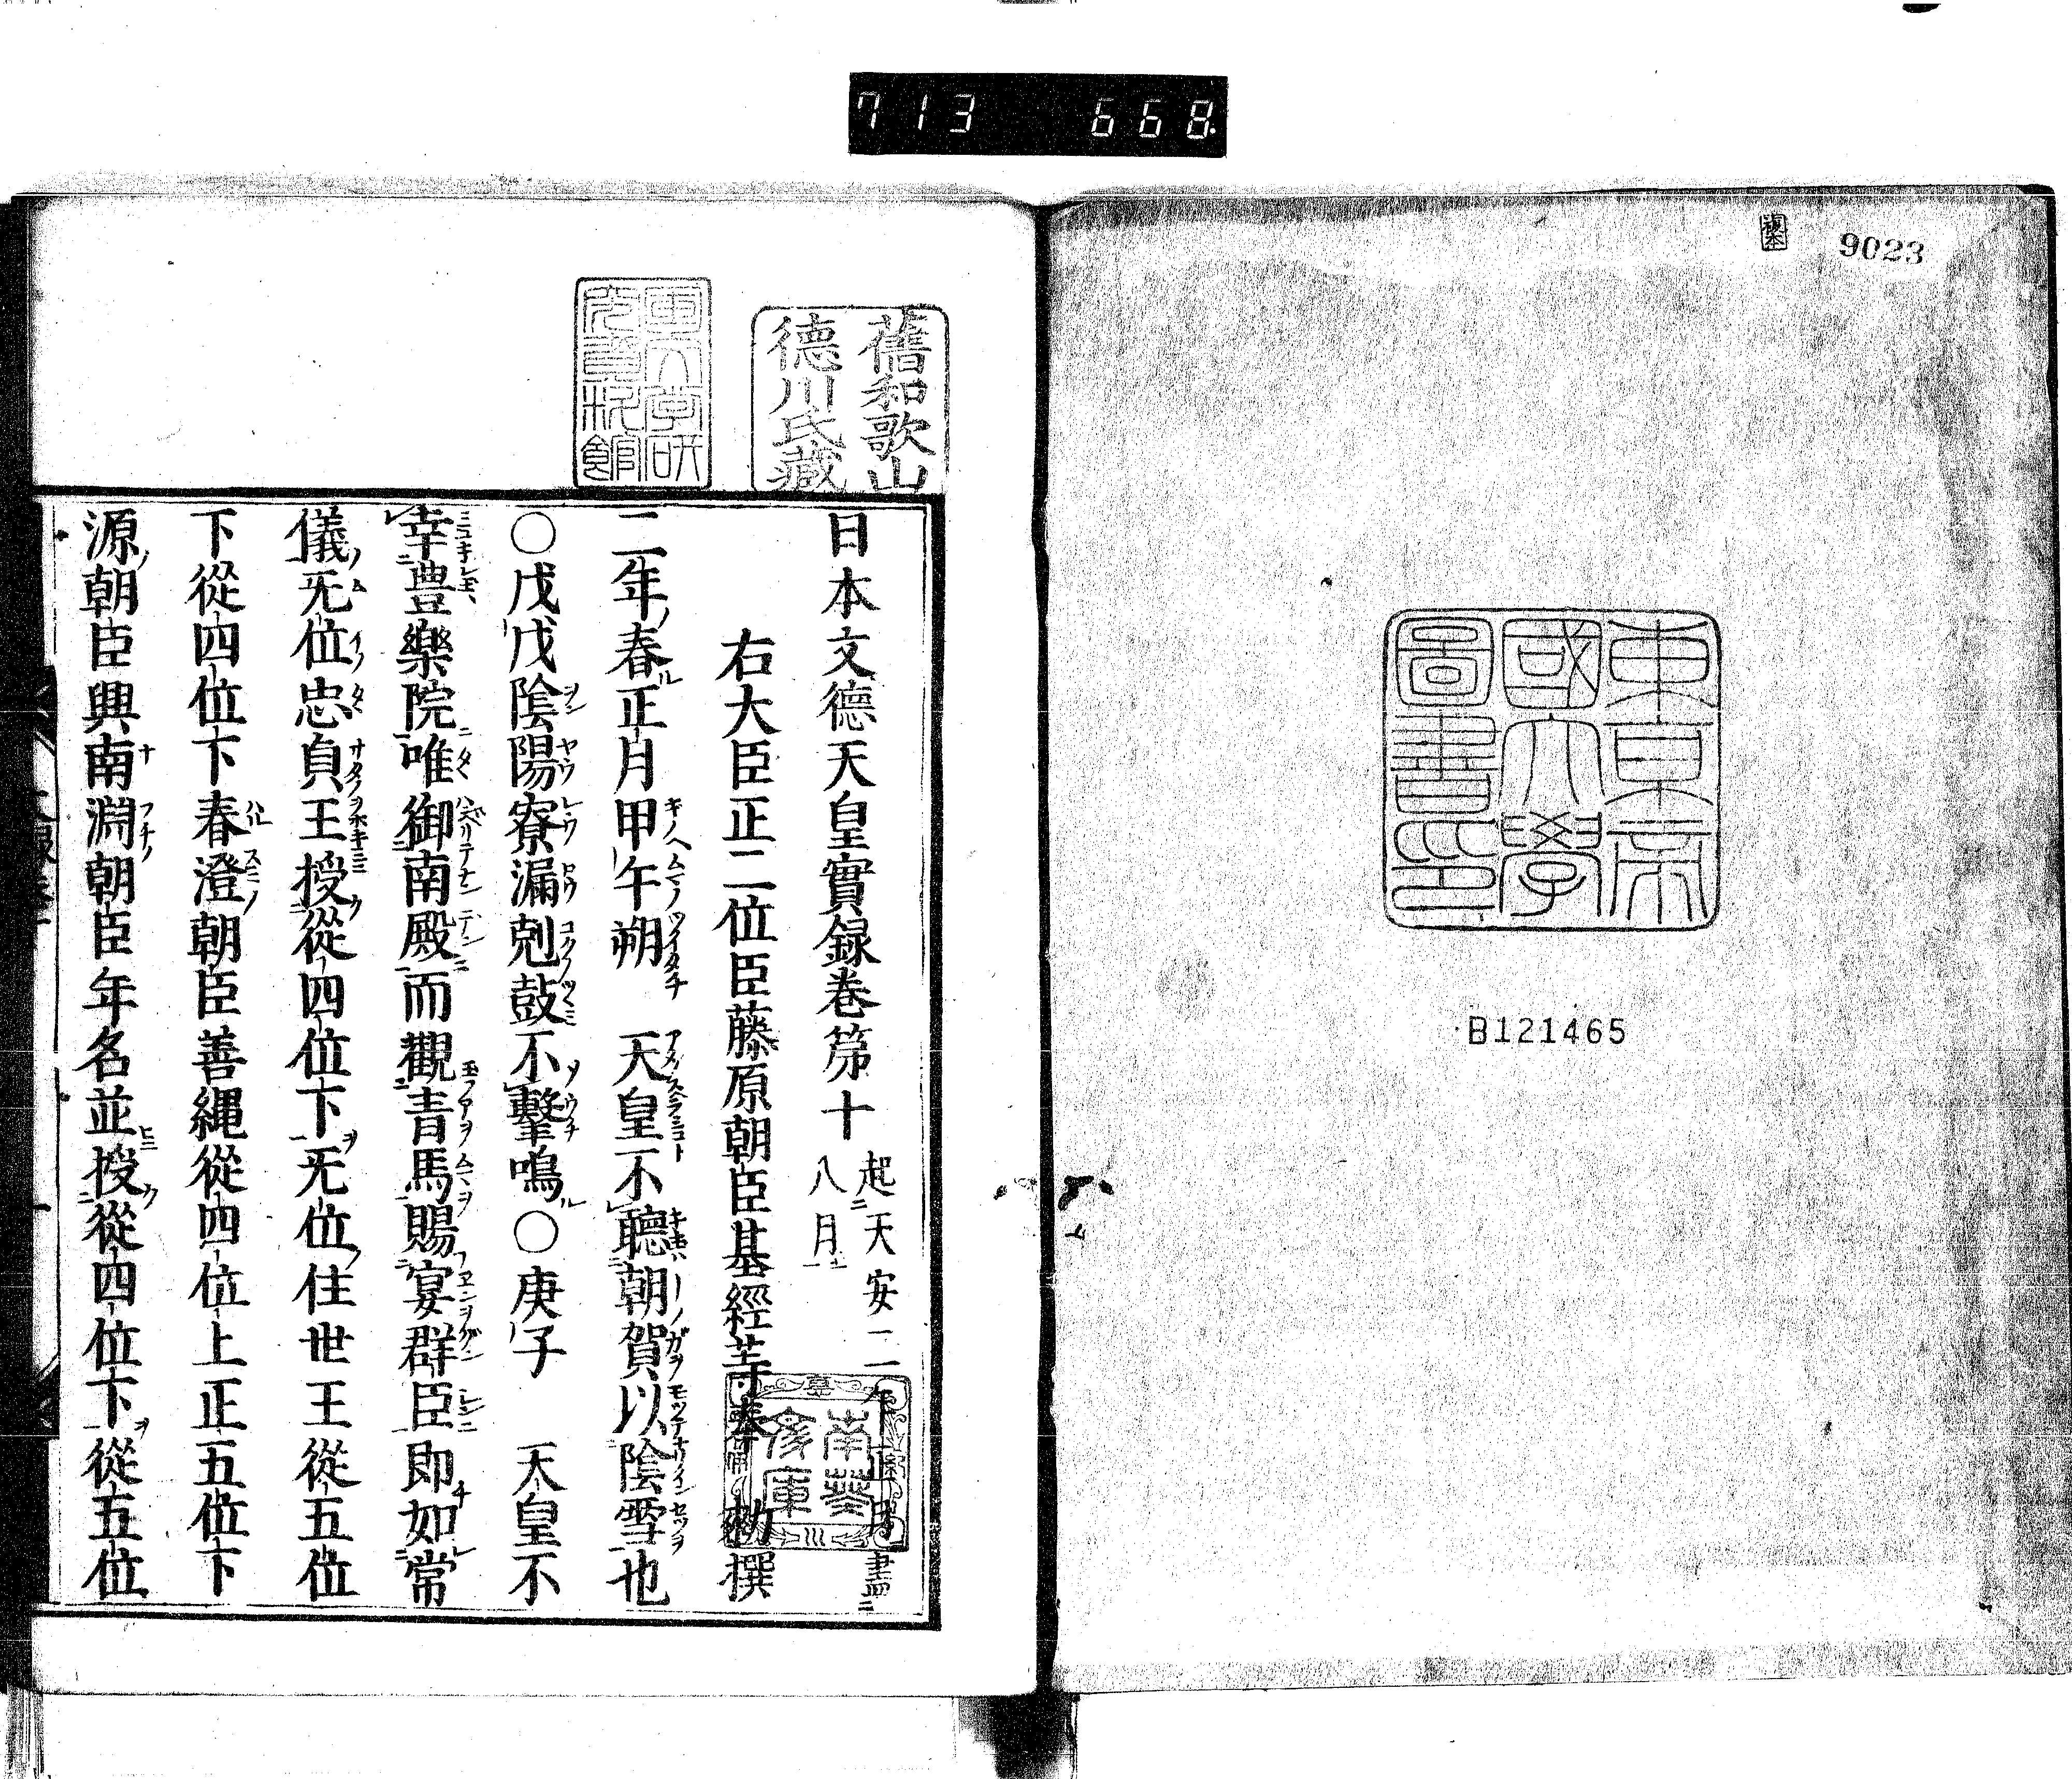 713 668.
複本
9023
東京帝
國大學
圖書印
B121465
舊和歌山
德川氏藏
南葵
文庫
日本文德天皇實録卷第十 起天安二年正月盡八月
右大臣正二位臣藤原朝臣基經等奉 勑撰
二年春正月甲午朔 天皇不聽朝賀以陰雪也
○戊戌陰陽寮漏剋鼓不擊鳴○庚子 天皇不
幸豊樂院唯御南殿而觀青馬賜宴群臣即如常
儀旡位忠貞王授從四位下旡位住世王從五位
下從四位下春澄朝臣善縄從四位上正五位下
源朝臣興南淵朝臣年名並授從四位下從五位